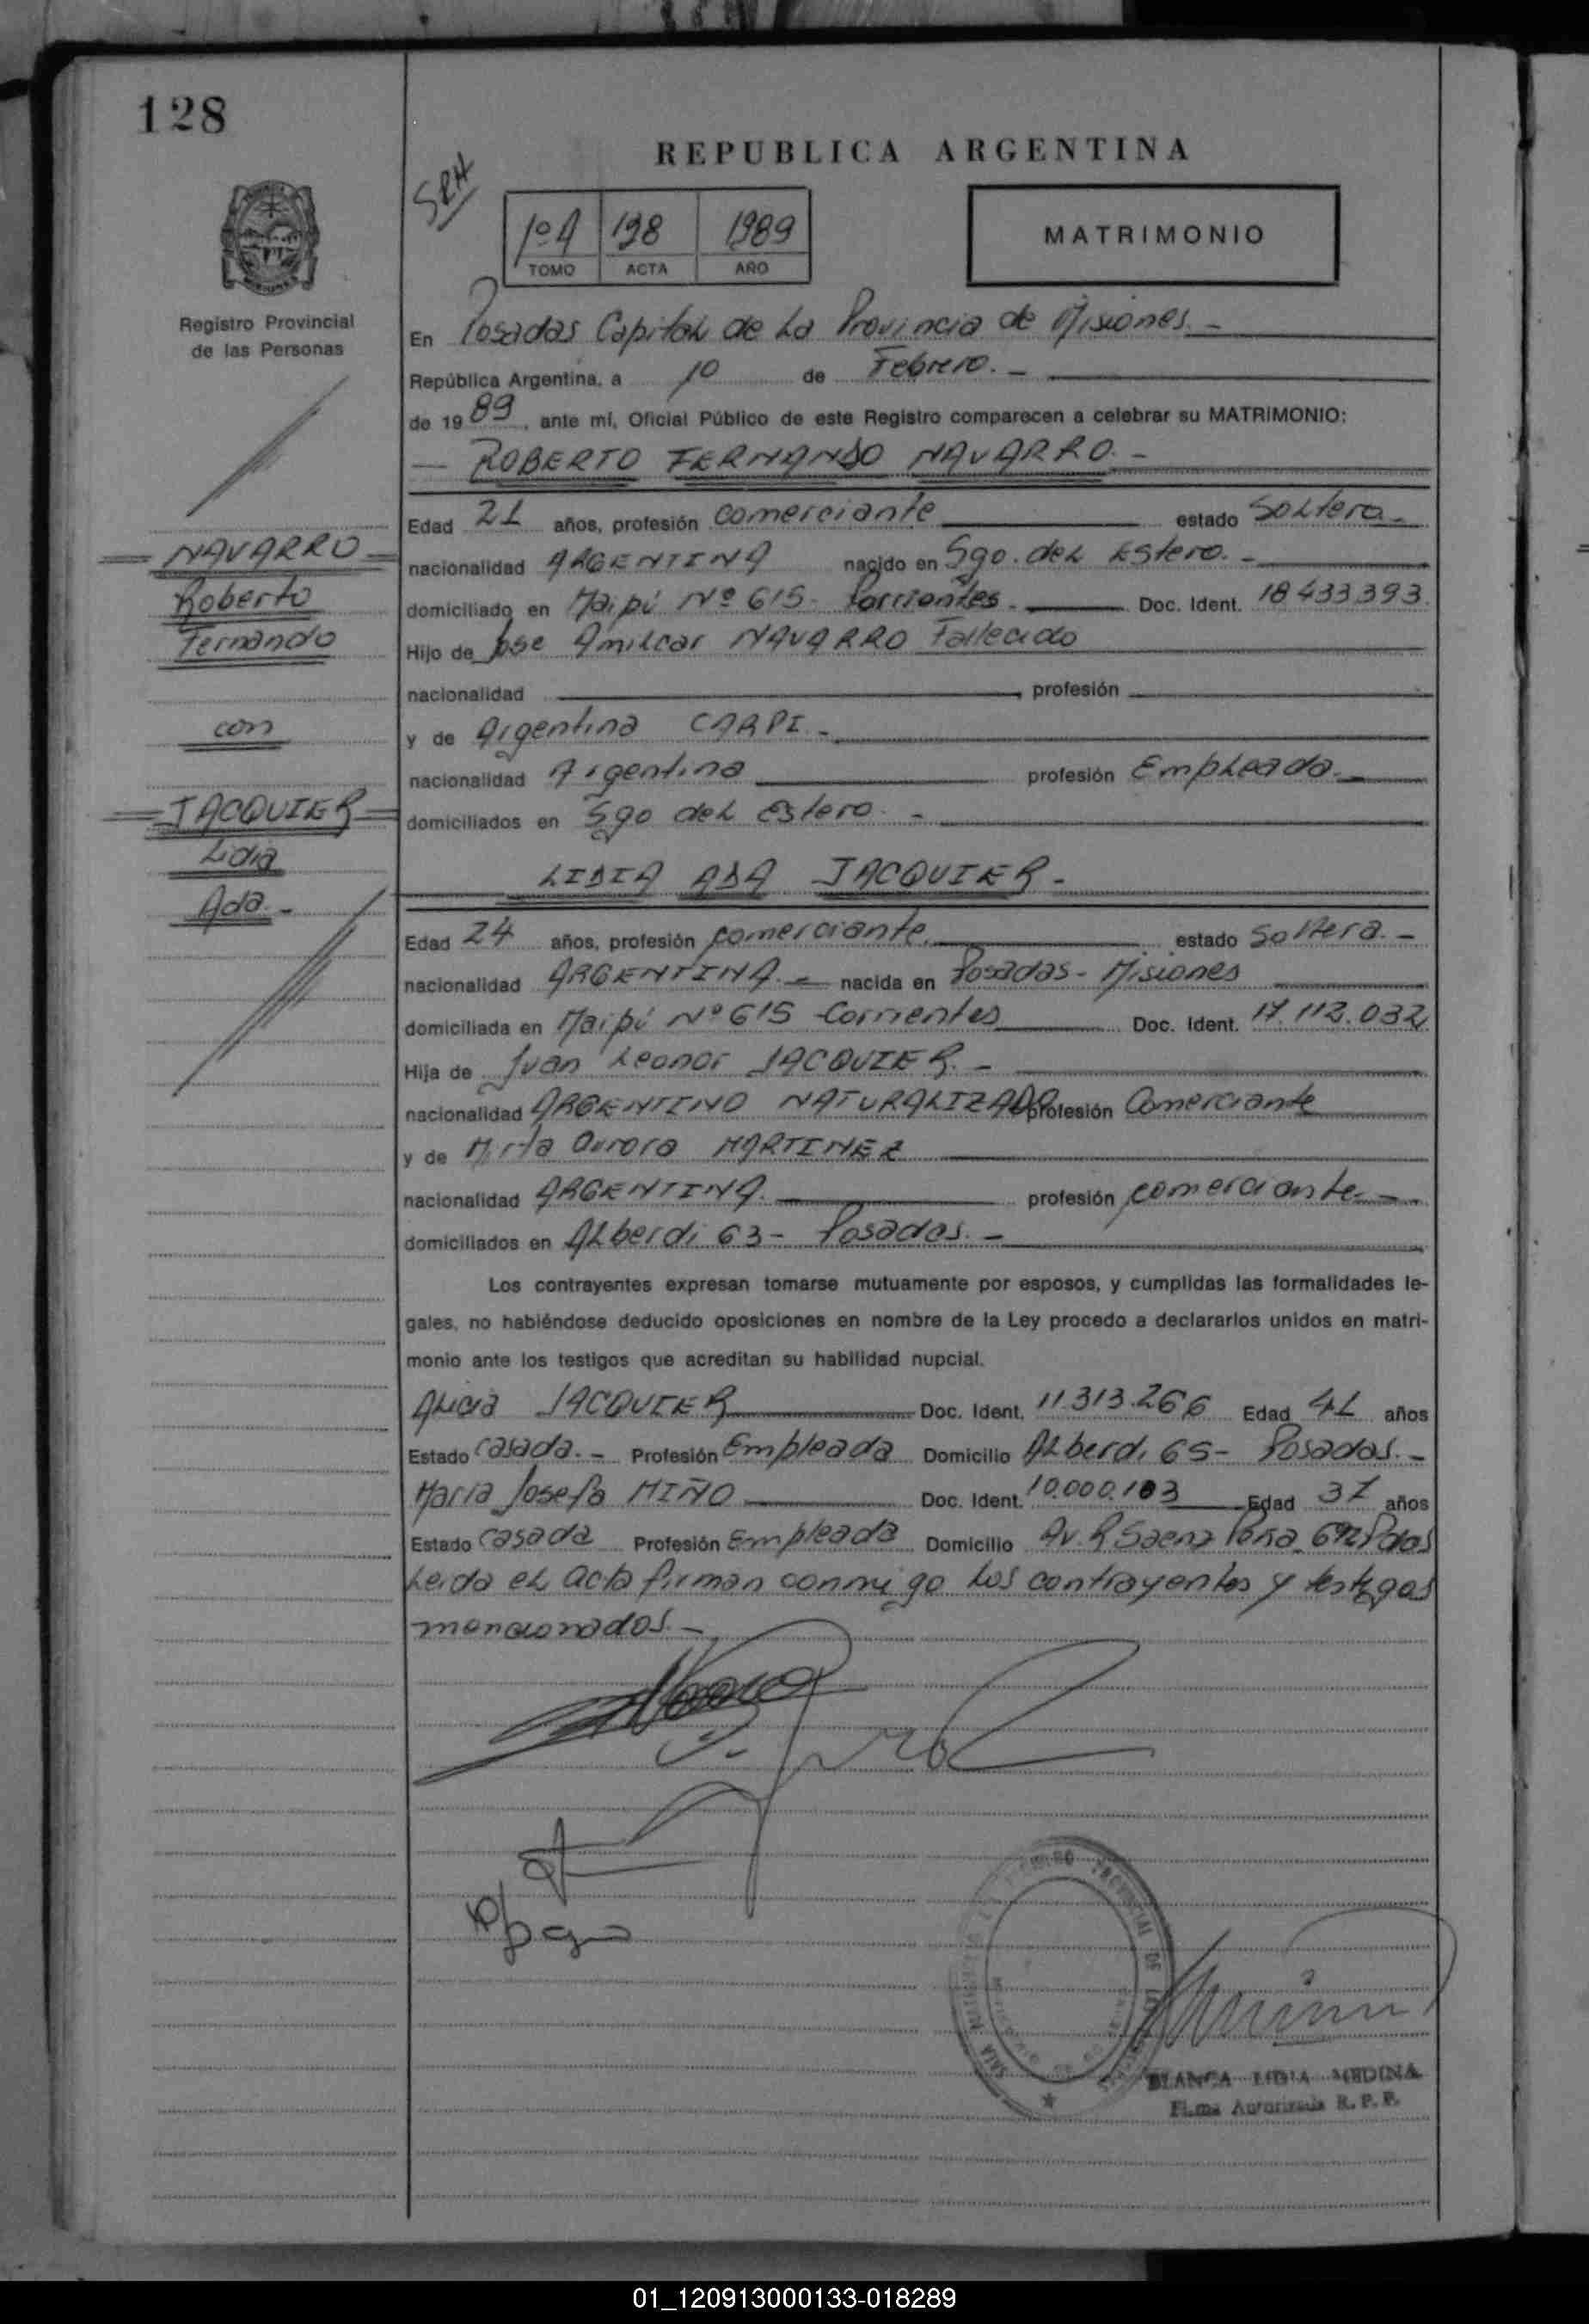 128
REPUBLICA ARGENTINA
SRH
1º A 128 1989
TOMO ACTA AÑO
MATRIMONIO
Registro Provincial
de las Personas
En Posadas Capital de La Provincia de Misiones. -
República Argentina, a 10 de Febrero. -
de 19 89, ante mí, Oficial Público de este Registro comparecen a celebrar su MATRIMONIO:
— ROBERTO FERNANDO NAVARRO. -
Edad 21 años, profesión comerciante estado Soltero -
nacionalidad ARGENTINA nacido en Sgo. del Estero. -
domiciliado en Maipú Nº 615 - Corrientes. Doc. Ident. 18433.393.
Hijo de Jose Amilcar NAVARRO Fallecido
nacionalidad profesión
y de Argentina CARPI. -
nacionalidad Argentina profesión Empleada. -
domiciliados en Sgo del Estero. -
LIDIA ADA JACQUIER -
Edad 24 años, profesión comerciante. estado Soltera. -
nacionalidad ARGENTINA. - nacida en Posadas - Misiones
domiciliada en Maipú Nº 615 - Corrientes Doc. Ident. 17.112.032
Hija de Juan Leonor JACQUIER. -
nacionalidad ARGENTINO NATURALIZADO profesión Comerciante
y de Mirta Aurora MARTINEZ
nacionalidad ARGENTINA. profesión comerciante. -
domiciliados en Alberdi 63 - Posadas. -
NAVARRO
Roberto
Fernando
con
JACQUIER
Lidia
Ada. -
Los contrayentes expresan tomarse mutuamente por esposos, y cumplidas las formalidades le-
gales, no habiéndose deducido oposiciones en nombre de la Ley procedo a declararlos unidos en matri-
monio ante los testigos que acreditan su habilidad nupcial.
Alicia JACQUIER Doc. Ident. 11.313.266 Edad 41 años
Estado Casada. - Profesión Empleada Domicilio Alberdi 65 - Posadas. -
Maria Josefa MIÑO Doc. Ident. 10.000.103 Edad 37 años
Estado Casada Profesión Empleada Domicilio Av. R. Saenz Peña 692 Pdas
Leida el acta firman conmigo los contrayentes y testigos
mencionados. -
BLANCA LIDIA MEDINA
Firma Autorizada R. P. P.
01_120913000133-018289